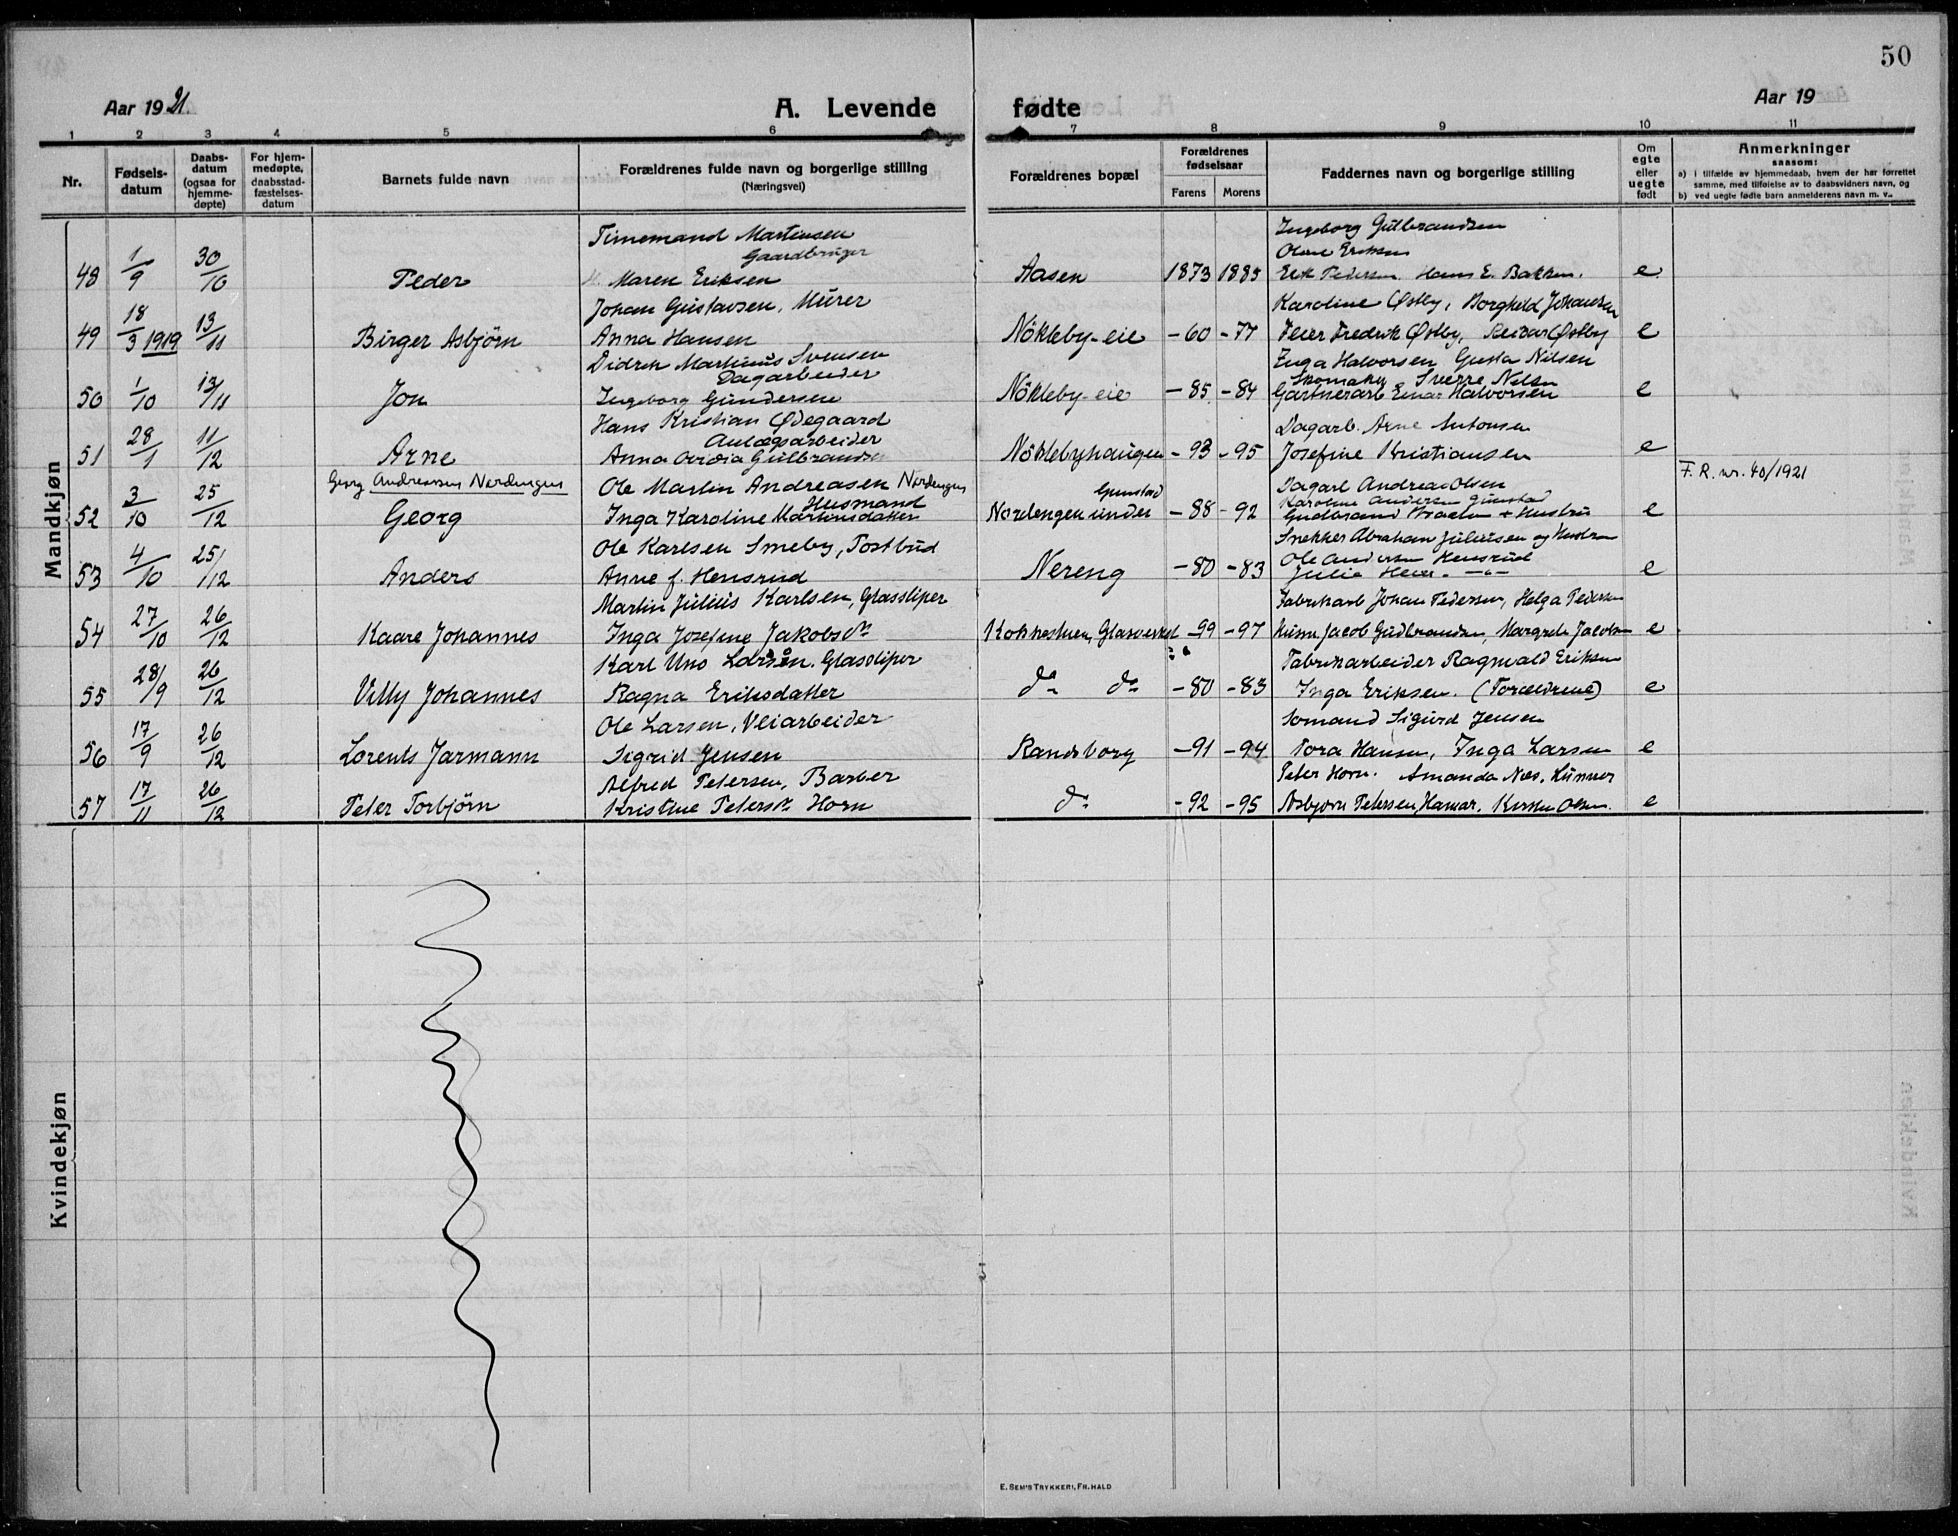 50
Aar 1921.
A. Levende fødte
Aar 19
1 2 3 4 5 6 7 8 9 10 11
Nr.
Fødsels-datum
Daabs-datum (ogsaa for hjemme-døpte)
For hjem-medøpte, daabsstad-fæstelses-datum
Barnets fulde navn
Forældrenes fulde navn og borgerlige stilling
(Næringsvei)
Forældrenes bopæl
Forældrenes fødselsaar
Farens Morens
Faddernes navn og borgerlige stilling
Om egte eller uegte født
Anmerkninger
saasom:
a) i tilfælde av hjemmedaab, hvem der har forrettet samme, med tilføielse av to daabsvidners navn, og
b) ved uegte fødte barn anmelderens navn m. v.
Mandkjøn
Martinsen Ingeborg Gulbrandsen
Gaardbruger
48 1/9 30/10 Peder Maren Eriksen Aasen 1873 1885 Erik Pedersen. Hans E. Bakken. e
Johan Gustavsen, Murer Karoline Østby, Borghild Johansen
49 18/3 1919 13/11 Birger Asbjørn Anna Hansen Nökleby-eie -60 -77 Fredrik Østby, Reidar Østby e
Didrik Martinius Svensen Inga Halvorsen Gusta Nilsen
Dagarbeider Sverre
50 1/10 13/11 Jon Ingeborg Gundersen Nökleby-eie -85 -84 Gartnerarb Einar Halvorsen e
Hans Kristian Ødegaard Dagarb. Arne Antonsen
Anlægsarbeider
51 28/1 11/12 Arne Anna Gulbrandsen Nöklebyhaugen -93 -95 Josefine Kristiansen e
Georg Andreassen Nordengen Ole Martin Andreasen Nordengen Dagarb Andreas Olsen F. R. nr. 40/1921
Husmand Gunstad Karoline Andersen Gunstad
52 3/10 25/12 Georg Inga Karoline Martinsdatter Nordengen under -88 -92 Gudbrand Braaten + Hustru e
Ole Karlsen Smeby, Postbud Snekker Abrahan Juliussen og Hustru
Ole Andersen Hensrud
53 4/10 25/12 Anders Anne f. Hensrud Nereng -80 -83 Julie e
Martin Julius Karlsen, Glassliper Fabrikarb Johan Pedersen, Helga Pedersen
54 27/10 26/12 Kaare Johannes Inga Josefine Jakobsdr Glasverket -99 -97 Jacob Gudbrandsen, Margrete Jacobsen e
Karl Uno Larsén. Glassliper Fabrikarbeider Ragnvald Eriksen
55 28/9 26/12 Villy Johannes Ragna Eriksdatter do do -80 -83 Inga Eriksen. (Forældrene) e
Ole Larsen, Veiarbeider Sömand Sigurd Jensen
56 17/9 26/12 Lorents Jarmann Sigrid Jensen Randsborg -91 -94 Tora Hansen, Inga Larsen e
Alfred Petersen, Barber Peter Horn. Amanda Næs, Hunner
57 17/11 26/12 Peter Torbjörn Kristine Petersdr Horn do -92 -95 Asbjørn Petersen, Hamar. Kirsten Olsen. e
Kvindekjøn
E. SEM'S TRYKKERI, FR. HALD